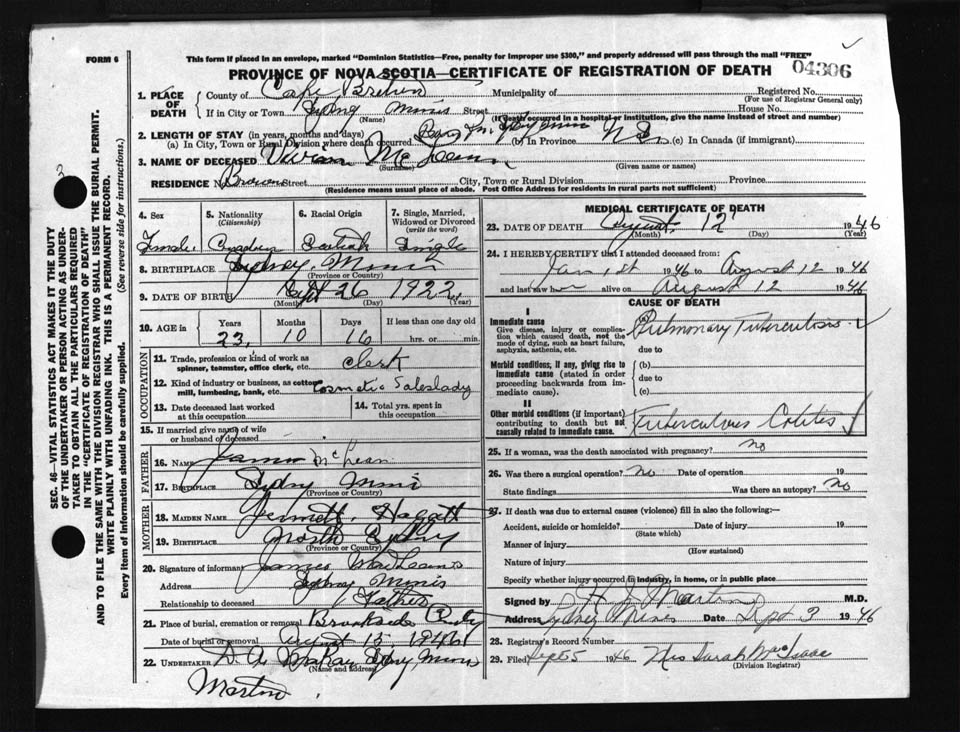 FORM 6
This form if posted in an envelope, marked "Dominion Statistics—Free, penalty for improper use $300," and properly addressed will pass through the mail "FREE"
PROVINCE OF NOVA SCOTIA—CERTIFICATE OF REGISTRATION OF DEATH
04306
1. PLACE OF DEATH
County of Cape Breton Municipality of Registered No.
(For use of Registrar General only)
If in City or Town Sydney Mines Street House No.
(Name) (If death occurred in a hospital or institution, give the name instead of street and number)
2. LENGTH OF STAY (in years, months and days)
(a) In City, Town or Rural Division where death occurred (b) in Province N.S. (c) In Canada (if immigrant)
3. NAME OF DECEASED Vivian McLean
(Surname) (Given name or names)
RESIDENCE No. Brown Street City, Town or Rural Division Province
(Residence means usual place of abode. Post Office Address for residents in rural parts not sufficient)
4. Sex 5. Nationality 6. Racial Origin 7. Single, Married,
(Citizenship) Widowed or Divorced
(write the word)
Female. Canadian Scotish Single
8. BIRTHPLACE Sydney Mines
(Province or Country)
9. DATE OF BIRTH Sept 26 1922
(Month) (Day) (Year)
10. AGE in Years Months Days If less than one day old
23 10 16 hrs. or min.
OCCUPATION
11. Trade, profession or kind of work as
spinner, teamster, office clerk, etc. clerk
12. Kind of industry or business, as cotton
mill, lumbering, bank, etc. Cosmetic Saleslady
13. Date deceased last worked
at this occupation
14. Total yrs. spent in
this occupation
15. If married give name of wife
or husband of deceased
FATHER
16. NAME James McLean
17. BIRTHPLACE Sydney Mines
(Province or Country)
MOTHER
18. MAIDEN NAME
19. BIRTHPLACE North Sydney
(Province or Country)
20. Signature of informant James MacLean
Address Sydney Mines
Relationship to deceased Father
21. Place of burial, cremation or removal Brookside
Date of burial or removal August 15 1946
22. UNDERTAKER Sydney Mines
(Name and address)
MEDICAL CERTIFICATE OF DEATH
23. DATE OF DEATH August 12 1946
(Month) (Day) (Year)
24. I HEREBY CERTIFY that I attended deceased from:
Jan 1st 1946 to August 12 1946
and last saw her alive on August 12 1946
CAUSE OF DEATH
I
Immediate cause
Give disease, injury or complication which caused death, not the mode of dying, such as heart failure, asphyxia, asthenia, etc.
Pulmonary Tuberculosis
due to
Morbid conditions, if any, giving rise to immediate cause (stated in order proceeding backwards from immediate cause).
(b)
due to
(c)
II
Other morbid conditions (if important) contributing to death but not causally related to immediate cause.
Tuberculous Colitis
25. If a woman, was the death associated with pregnancy? no
26. Was there a surgical operation? No Date of operation 19
State findings Was there an autopsy? No
27. If death was due to external causes (violence) fill in also the following:—
Accident, suicide or homicide? Date of injury 19
(State which)
Manner of injury
(How sustained)
Nature of injury
Specify whether injury occurred in industry, in home, or in public place
Signed by Martin M.D.
Address Sydney Mines Date Sept 3 1946
28. Registrar's Record Number
29. Filed Sept 5 1946 Mrs Sarah MacIsaac
(Division Registrar)
SEC. 46—VITAL STATISTICS ACT MAKES IT THE DUTY
OF THE UNDERTAKER OR PERSON ACTING AS UNDERTAKER TO OBTAIN ALL THE PARTICULARS REQUIRED
IN THE "CERTIFICATE OF REGISTRATION OF DEATH"
AND TO FILE THE SAME WITH THE DIVISION REGISTRAR WHO SHALL ISSUE THE BURIAL PERMIT.
WRITE PLAINLY WITH UNFADING INK. THIS IS A PERMANENT RECORD.
Every item of information should be carefully supplied. (See reverse side for instructions.)